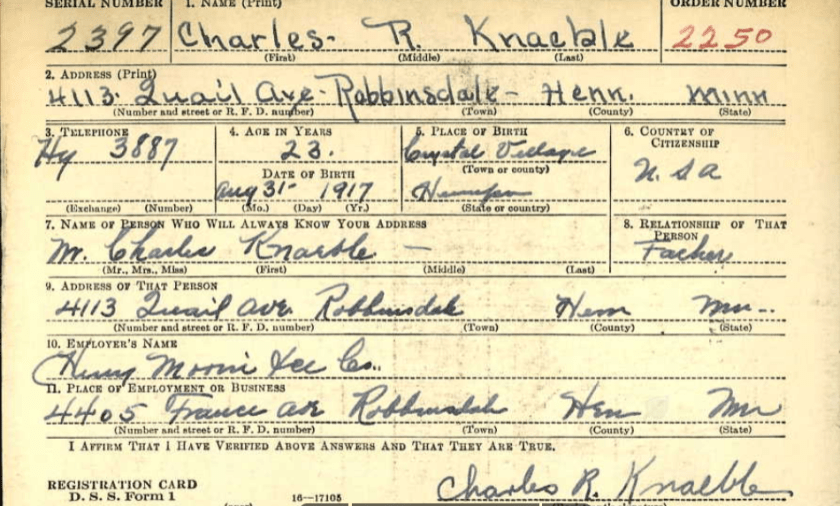 SERIAL NUMBER 1. NAME (Print) ORDER NUMBER
2397 Charles- R. Knaeble 2250
(First) (Middle) (Last)
2. ADDRESS (Print)
4113. Quail Ave- Robbinsdale- Henn. Minn
(Number and street or R. F. D. number) (Town) (County) (State)
3. TELEPHONE 4. AGE IN YEARS 5. PLACE OF BIRTH 6. COUNTRY OF CITIZENSHIP
Hy 3887 23. Crystal Village U. S A
DATE OF BIRTH (Town or county)
Aug 31- 1917
(Exchange) (Number) (Mo.) (Day) (Yr.) (State or country)
7. NAME OF PERSON WHO WILL ALWAYS KNOW YOUR ADDRESS 8. RELATIONSHIP OF THAT PERSON
Mr. Charles Knaeble — Father
(Mr., Mrs., Miss) (First) (Middle) (Last)
9. ADDRESS OF THAT PERSON
4113 Quail Ave. Robbinsdale Henn Mn--
(Number and street or R. F. D. number) (Town) (County) (State)
10. EMPLOYER'S NAME
Henry Ice Co..
11. PLACE OF EMPLOYMENT OR BUSINESS
4405 France Ave Robbinsdale Hen Mn
(Number and street or R. F. D. number) (Town) (County) (State)
I AFFIRM THAT I HAVE VERIFIED ABOVE ANSWERS AND THAT THEY ARE TRUE.
REGISTRATION CARD
D. S. S. Form 1 16—17105 Charles R. Knaebble